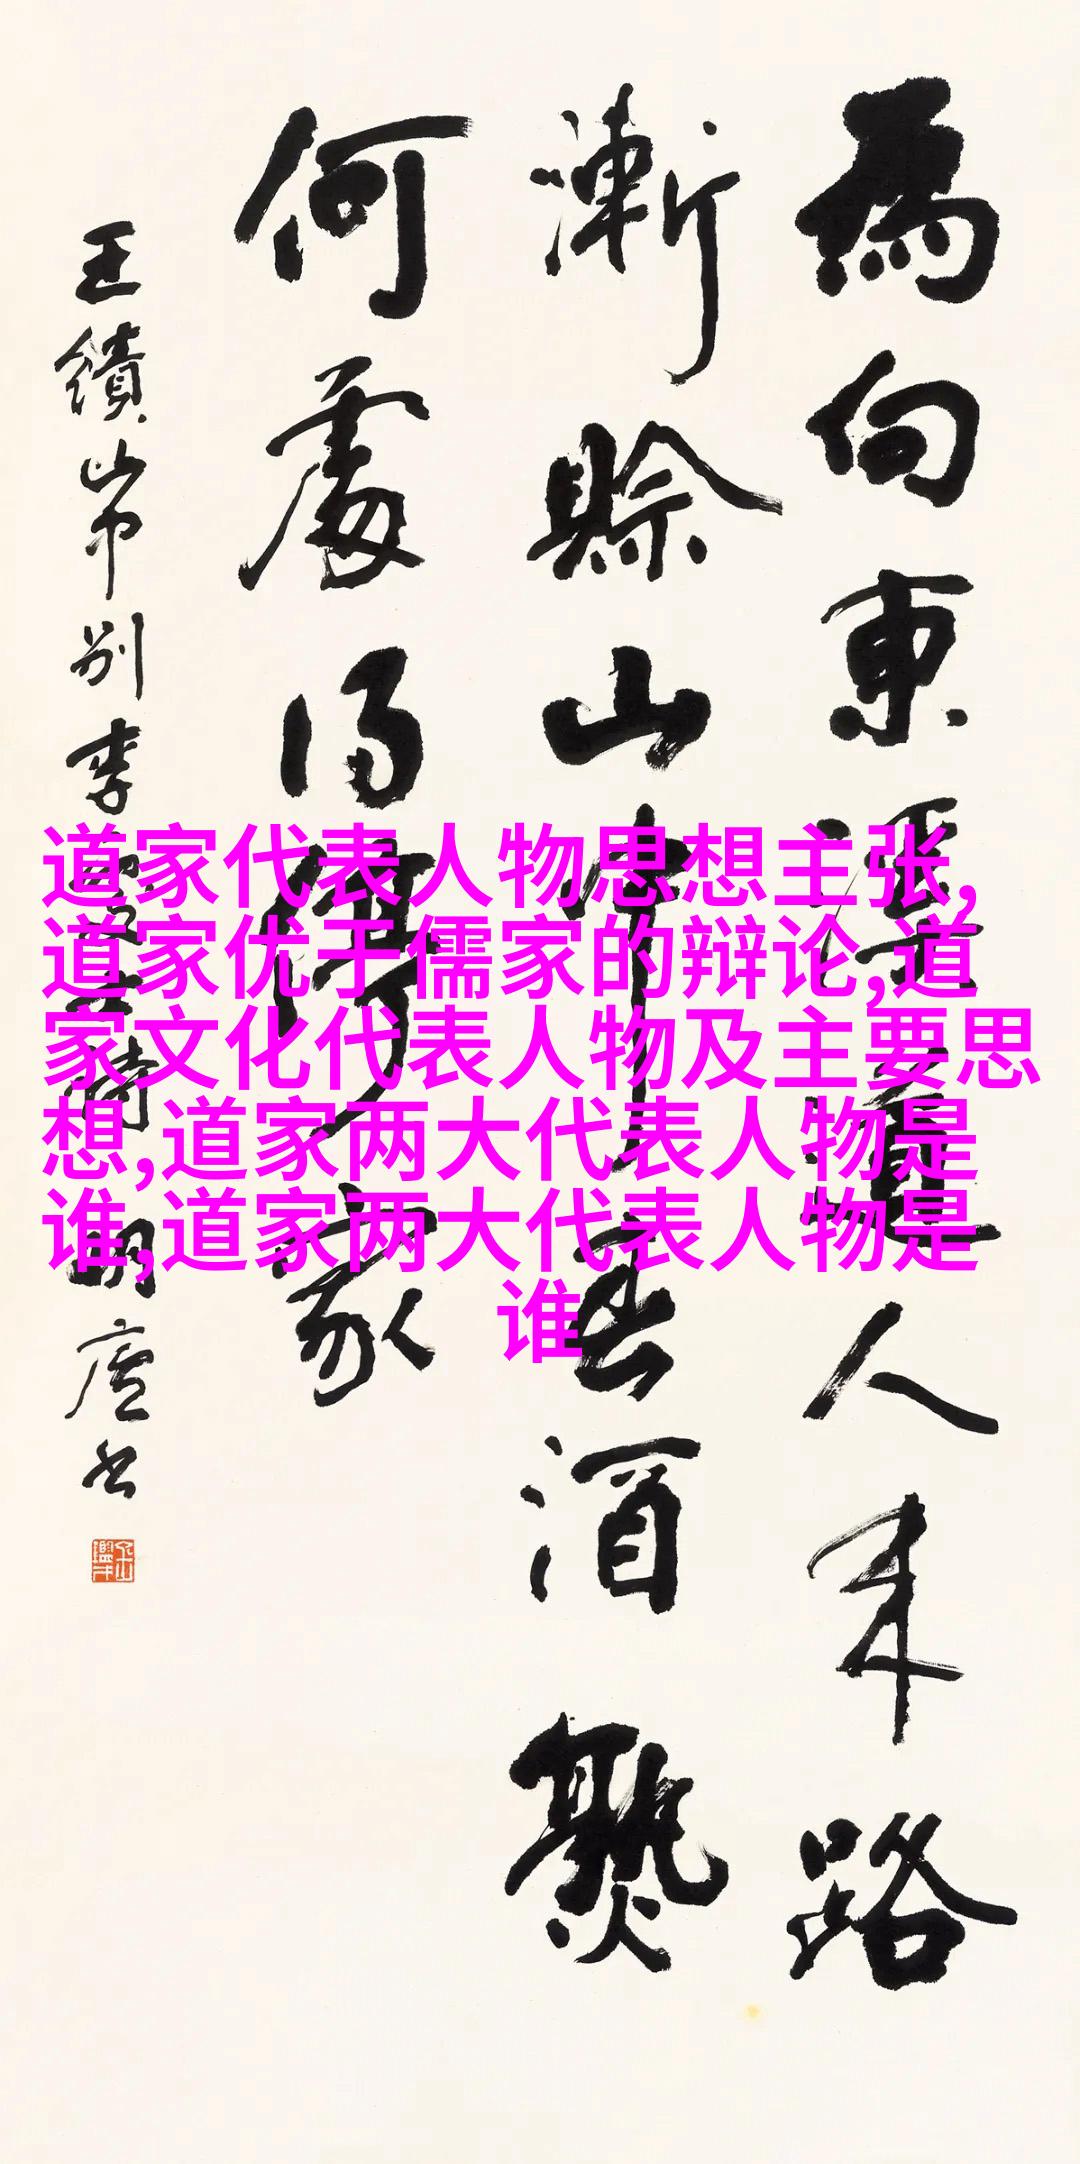 為向東溪道人来路
漸賒山中春酒熟
何處得停家
王績山中別李處士詩 明廬书
道家代表人物思想主张,
道家优于儒家的辩论,道
家文化代表人物及主要思
想,道家两大代表人物是
谁,道家两大代表人物是
谁